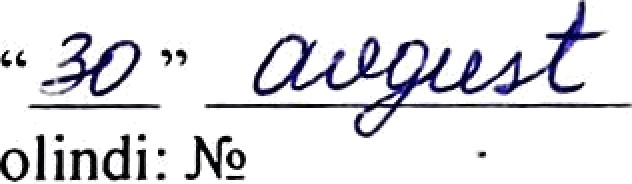 “30” avgust
olindi: №